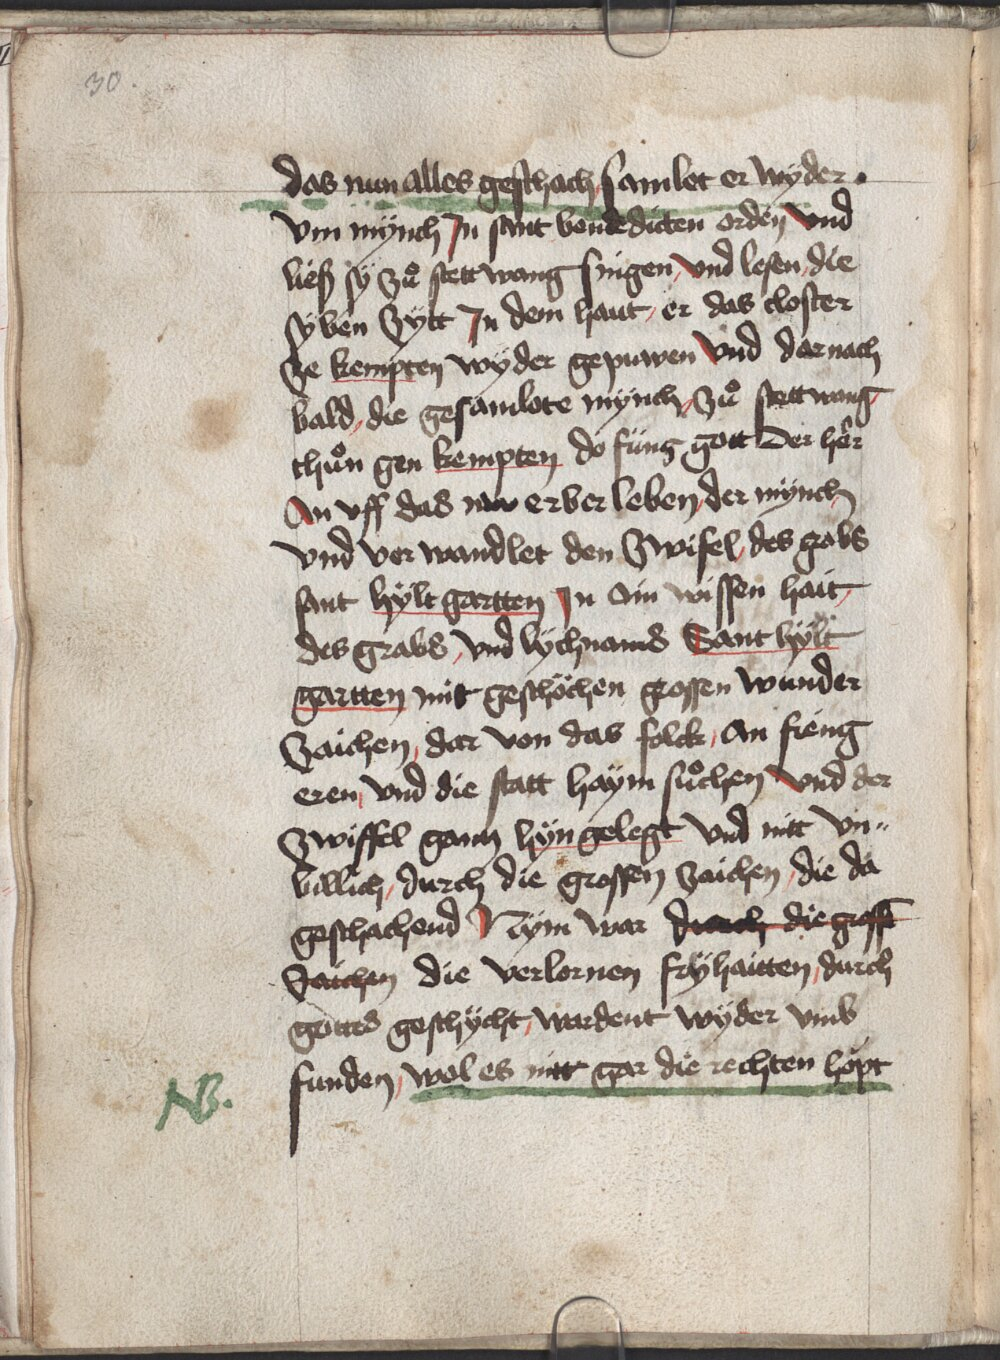 30.
das nun alles geschach samlet er wyder.
vm mÿnch Jn sant benedicten orden vnd
ließ sÿ zuͦ stettwang singen vnd lesen die
syben zÿtt Jn dem haut er das closter
ze kempten wyder gepuwen vnd darnach
bald die gesamlote mÿnch zuͦ stettwang
thuͦn gen kempten do füng gott der her
An vff das erber leben der mÿnch
vnd verwandlet den zwifel des grabs
sant hÿltgartten Jn ain wissen hait
des grabs vnd lÿchnams Sant hÿlt
gartten mit geschöchen grossen wunder
zaichen dar von das folck an fieng
eren vnd die statt haÿm suͦchen vnd der
zwiffel gantz hÿn gelegt vnd nitt vn„
billich durch die grossen zaichen die da
geschachend Nÿm war durch die gross
zaichen die verlornen frÿhaitten durch
gottes geschÿcht wardent wÿder vmb
funden wol es nitt gar die rechten höpt
NB.